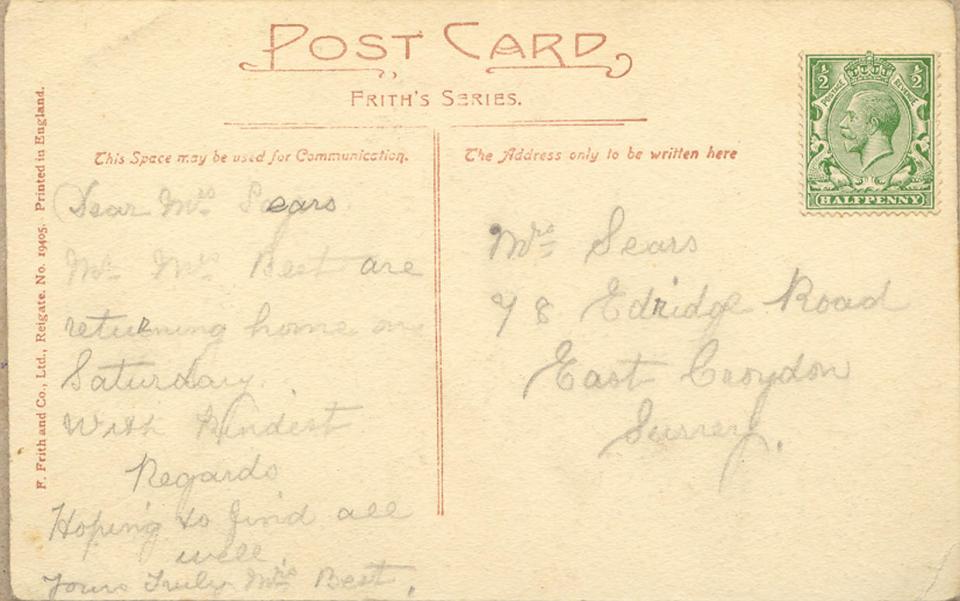 POST CARD
FRITH'S SERIES.
F. Frith and Co., Ltd., Reigate. No. 19405. Printed in England.
This Space may be used for Communication.
Dear Mrs Sears
Mr Mrs Best are
returning home on
Saturday.
With Kindest
Regards
Hoping to find all
well.
Yours Truly Mrs Best.
The Address only to be written here
Mrs Sears
78 Edridge Road
East Croydon
Surrey.
½ ½
POSTAGE REVENUE
HALFPENNY